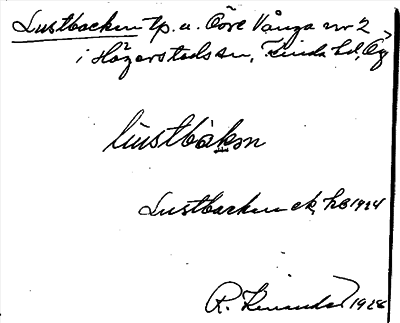 Lustbacken tp. u. Övre Vånga nr 2
i Högerstads sn, Kinda hd, Ög
lüstbakən
Lustbacken ek hs 1924
R. 1926